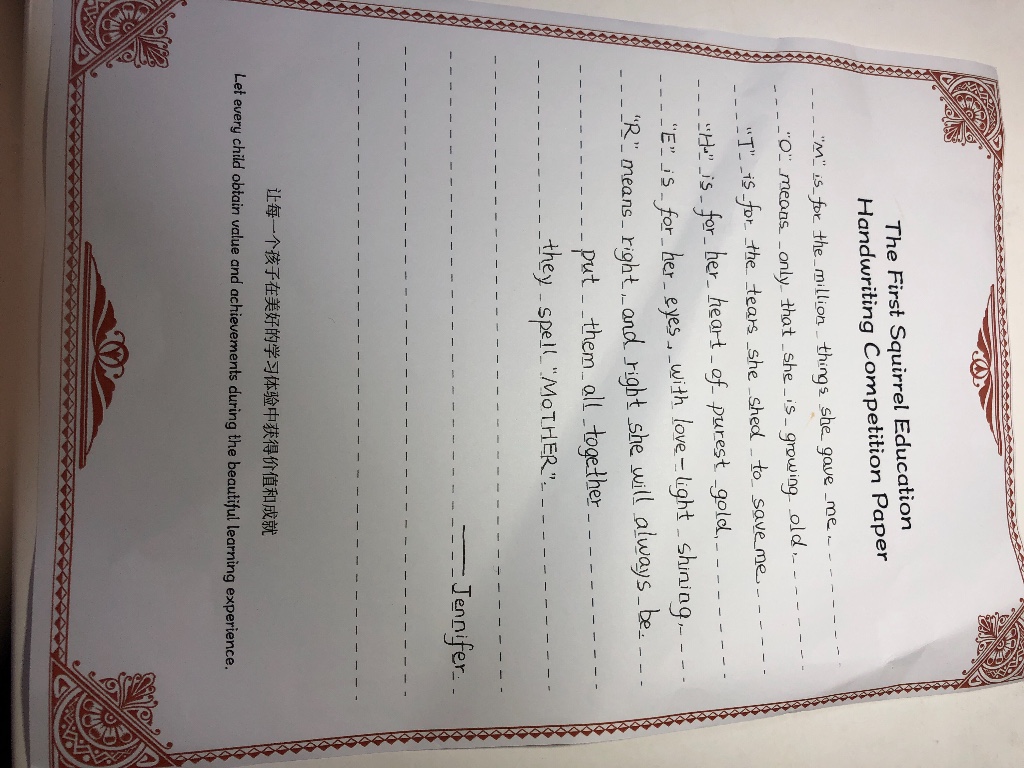 The First Squirrel Education
Handwriting Competition Paper
"M" is for the million things she gave me.
"O" means only that she is growing old.
"T" is for the tears she shed to save me.
"H" is for her heart of purest gold.
"E" is for her eyes, with love-light shining.
"R" means right, and right she will always be.
put them all together
they spell "MOTHER".
——Jennifer.
让每一个孩子在美好的学习体验中获得价值和成就
Let every child obtain value and achievements during the beautiful learning experience.